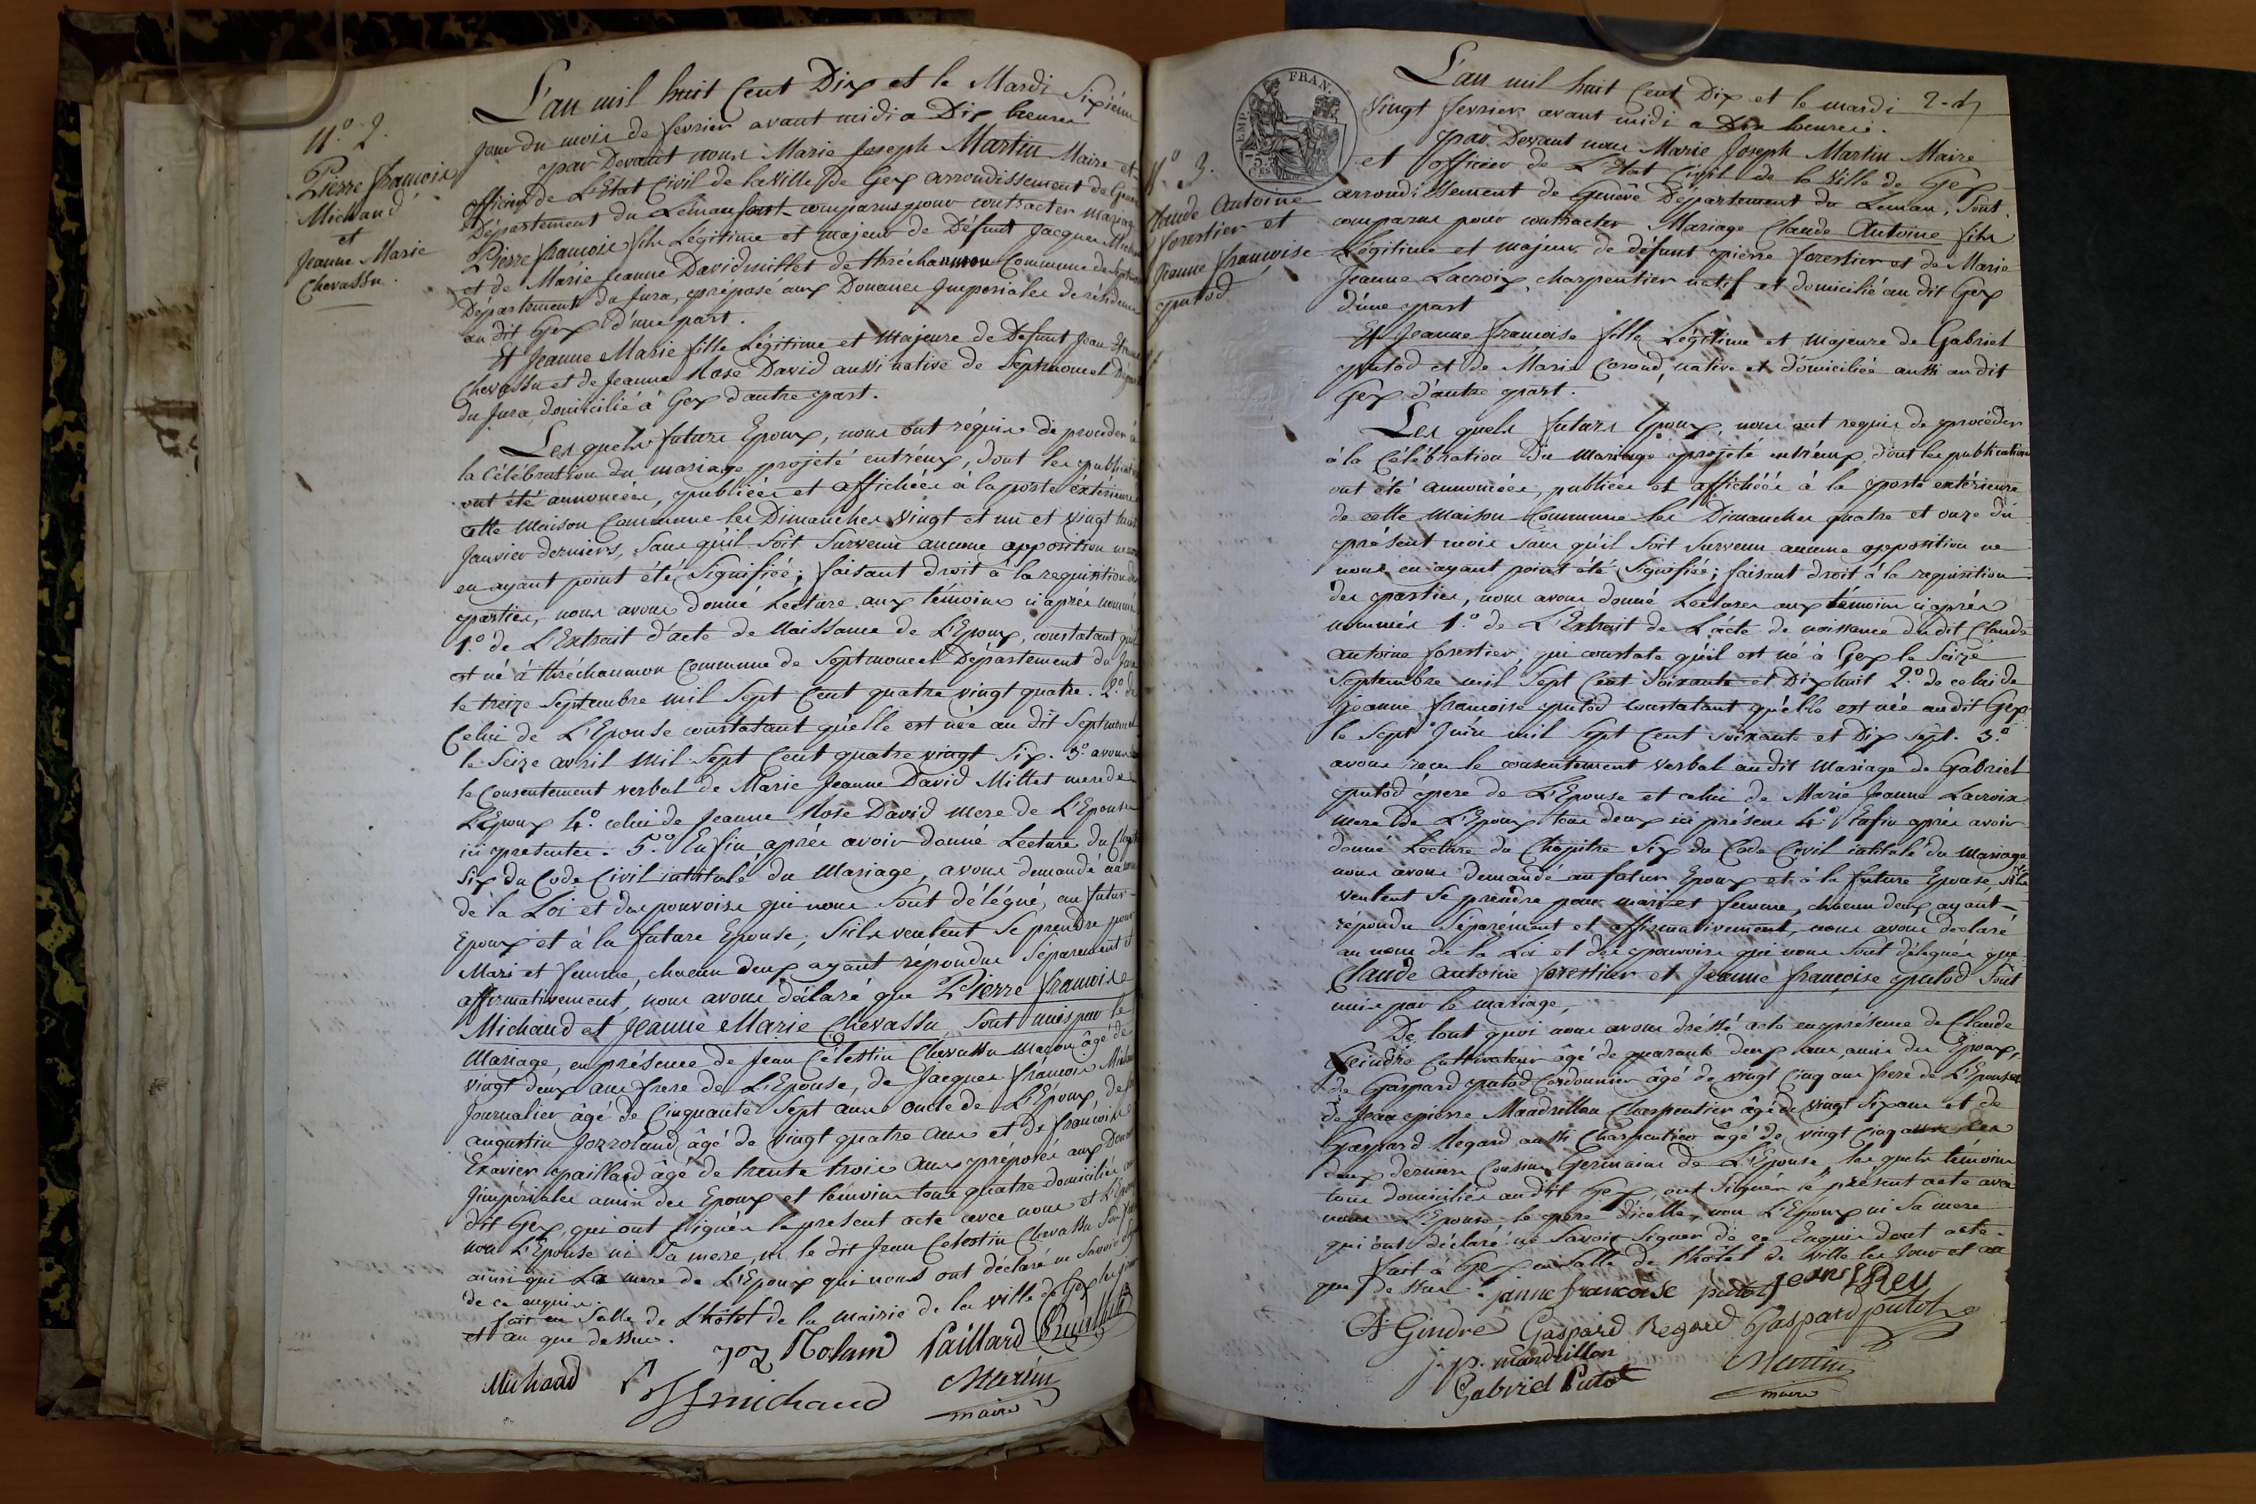 N.° 2.
Pierre françois
Michaud
et
Jeanne Marie
Chevassu.
L'an mil huit Cent Dix et le Mardi Sixiéme
jour du mois de fevrier avant midi a Dix heures
par Devant nous Marie Joseph Martin Maire et
officier de L'Etat Civil de la Ville de Gex arrondissement de
Département du Leman sont comparus pour contracter mariage
Pierre françois fils Légitime et majeur de Défunt Jacques
et de Marie Jeanne David millet de thréchaumon Commune de
Département du Jura, préposé aux Douanes Imperiales de résidence
au dit Gex d'une part.
Et Jeanne Marie fille Légitime et Majeure de Defunt Jean
Chevassu et de Jeanne Rose David aussi native de Septmoncel
du Jura, domicilié à Gex d'autre part.
Lesquels futurs Epoux, nous ont réquis de proceder à
la Célébration du mariage projeté entreux, dont les
ont été annoncées, publiées et affichées à la porte éxtérieure
cette Maison Commune les Dimanches Vingt et un et Vingt huit
Janvier derniers, sans quil soit Survenu aucune opposition
en ayant point été Signifiée; faisant droit à la requisition des
parties, nous avons donné Lecture aux témoins ci après nommés
1.° de L'Extrait d'acte de Naissance de L'Epoux, constatant quil
est né à thréchaumon Commune de Septmoncel Département du Jura
le treize Septembre mil Sept Cent quatre vingt quatre. 2.° de
Celui de L'Epouse constatant quélle est née au dit Septmoncel
le Seize avril Mil Sept Cent quatre vingt Six. 3.° avons
le Consentement verbal de Marie Jeanne David Millet mere de
L'Epoux 4.° celui de Jeanne Rose David Mere de L'Epouse
ici presentes. 5.° Enfin après avoir donné Lecture du
Six du Code Civil intitulé du Mariage, avons demandé au nom
de la Loi et des pouvoirs qui nous Sont délégué, au futur
Epoux et à la future Epouse, S'ils veulent Se prendre pour
Mari et femme, chacun deux ayant répondu Séparement et
affirmativement, nous avons déclaré que Pierre françois
Michaud et Jeanne Marie Chevassu, Sont unis par le
Mariage, en présence de Jean Célestin Chevassu Maçon âgé de
vingt deux ans frere de L'Epouse, de Jacques françois
Journalier âgé de Cinquante Sept ans oncle de L'Epoux, de
augustin Jozroland âgé de vingt quatre ans et de françois
Exavier Paillard âgé de trente trois ans préposés aux
Impériales amis des Epoux et témoins tous quatre domiciliés
dit Gex, qui ont Signés le present acte avec nous et L'Epoux
non L'Epouse ni Sa mere, ni le dit Jean Celestin Chevassu
ainsi que La mere de L'Epoux qui nous ont déclaré ne Savoir
de ce enquis.
fait en Salle de L'hôtel de la Mairie de la ville de Gex les jour
et an que dessus.
joz Roland Paillard
Michaud michaud Martin
maire
EMP. FRAN.
75 C.
2-d
N° 3.
Claude Antoine
forestier et
Jeanne françoise
putod
L'an mil huit Cent Dix et le mardi
Vingt fevrier avant midi a Dix heures.
par Devant nous Marie Joseph Martin Maire
et officier de L'Etat Civil de la Ville de Gex
arrondissement de Genêve Département du Leman, Sont
comparus pour contracter Mariage Claude Antoine fils
Légitime et majeur de défunt pierre forestier et de Marie
Jeanne Lacroix, charpentier natif et domicilié au dit Gex
d'une part
Et Jeanne françoise fille Légitime et majeure de Gabriel
putod et de Marie native et domiciliée aussi au dit
Gex d'autre part.
Les quels futurs Epoux, nous ont requis de procéder
à la Célébration du Mariage projeté entr'eux, dont les publications
ont été annoncées, publiées et affichées à la porte extérieure
de cette Maison Commune les Dimanches quatre et onze du
présent mois sans qu'il Soit Survenu aucune opposition ne
nous en ayant point été Signifiée; faisant droit à la requisition
des parties, nous avons donné Lectures aux témoins ci après
nommés 1.° de L'Extrait de L'acte de naissance du dit Claude
antoine forestier, qui constate qu'il est né à Gex le Seize
Septembre mil Sept Cent Soixante et Dix huit 2.° de celui de
Jeanne françoise putod constatant qu'elle est née au dit Gex
le Sept Juin mil Sept Cent Soixante et Dix Sept. 3.°
avons recu le consentement verbal au dit Mariage de Gabriel
putod pere de L'Epouse et celui de Marie Jeanne Lacroix
mere de L'Epoux tous deux ici présens 4.° Enfin après avoir
donné Lecture du Chapitre Six du Code Civil intitulé du Mariage
nous avons demandé au futur Epoux et à la future Epouse, S'ils
veulent Se prendre pour mari et femme, chacun deux ayant
répondu Séparément et affirmativement, nous avons déclaré
au nom de la Loi et des pouvoirs qui nous Sont délégués que
Claude antoine forestier et Jeanne françoise putod Sont
unis par le mariage,
De tout quoi nous avons dréssé acte en présence de Claude
Geindre Cultivateur âgé de quarante deux ans amis des Epoux,
de Gaspard putod Cordonnier âgé de vingt Cinq ans frere de L'Epouse
de Jean pierre Mandrillon Charpentier âgé de Vingt Six ans et de
Gaspard Regard aussi Charpentier âgé de vingt Cinq ans les
deux derniers Cousins Germains de L'Epouse, les quatre témoins
tous domiciliés au dit Gex, ont Signés le présent acte avec
nous L'Epouse le pere d'icelle, non L'Epoux ni Sa mere
qui ont déclaré ne Savoir Signer de ce Enquis dont acte.
Fait à Gex en Salle de L'hôtel de Ville les Jour et an
que Dessus. janne françoise putod Jean Rey
Cl Gindre Gaspard Regard Gaspard putod
j. p. mandrillon
Gabriel Putot Martin
maire